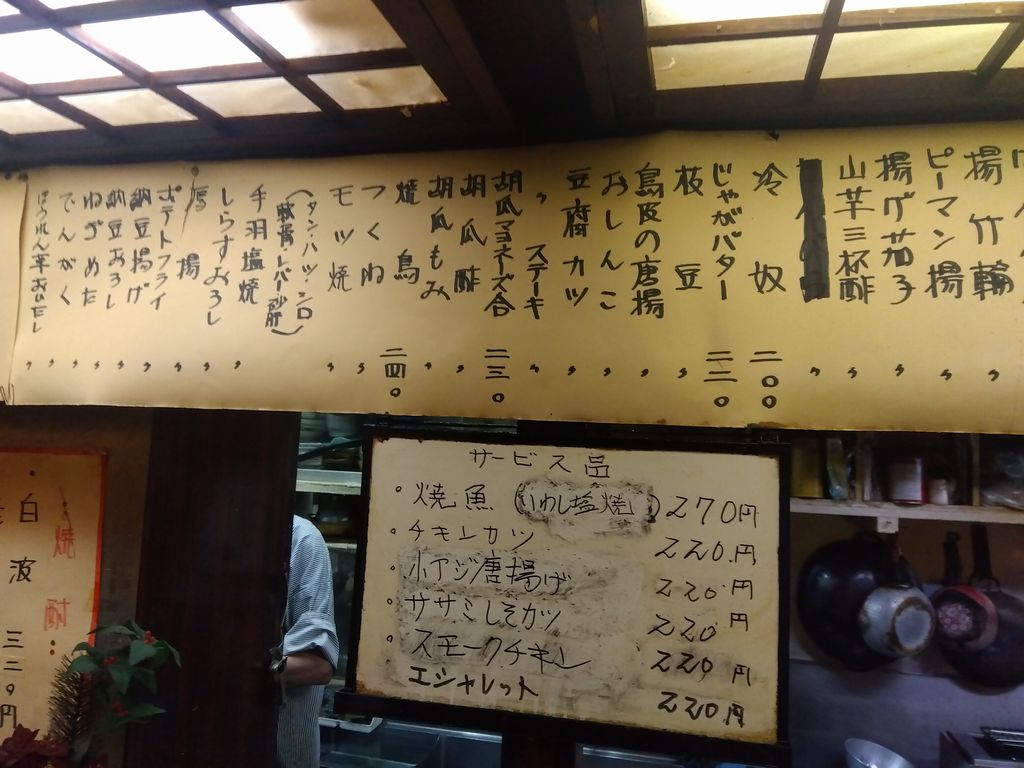 揚竹輪 〃
ピーマン揚 〃
揚げ茄子 〃
山芋三杯酢 〃
冷奴 二〇〇
じゃがバター 二二〇
枝豆 〃
鳥皮の唐揚 〃
おしんこ 〃
豆腐カツ 〃
〃 ステーキ 〃
胡瓜マヨネーズ合 二三〇
胡瓜酢 〃
胡瓜もみ 〃
焼鳥 二四〇
つくね 〃
モツ焼 〃
(タン・ハツ・シロ
軟骨・レバー・砂肝)
手羽塩焼 〃
しらすおろし 〃
厚揚 〃
ポテトフライ 〃
納豆揚げ 〃
納豆おろし 〃
ねぎぬた 〃
でんがく 〃
ほうれん草おひたし 〃
サービス品
・焼魚(いわし塩焼) 270円
・チキンカツ 220円
・小アジ唐揚げ 220円
・ササミしそカツ 220円
・スモークチキン 220円
エシャレット 220円
焼酎:
白波 三二〇円